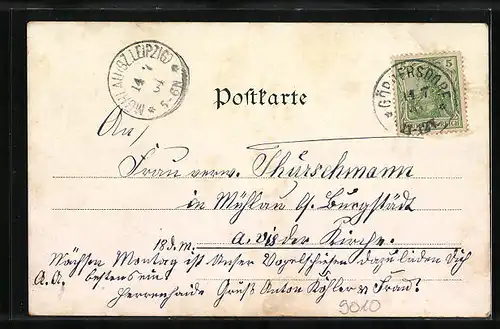 MÜHLAU (BZ. LEIPZIG)
5-6N
Postkarte
GÖPPERSDORF
5
An
Frau verw. Thürschmann
in Mühlau b. Burgstädt
a. vis der Kirche.
18 d. M.
Nächsten Montag ist Unser Vogelschiesen dazu laden Dich
bestens ein
Herrenhaide Gruß Anton Köhler u Frau.
9010